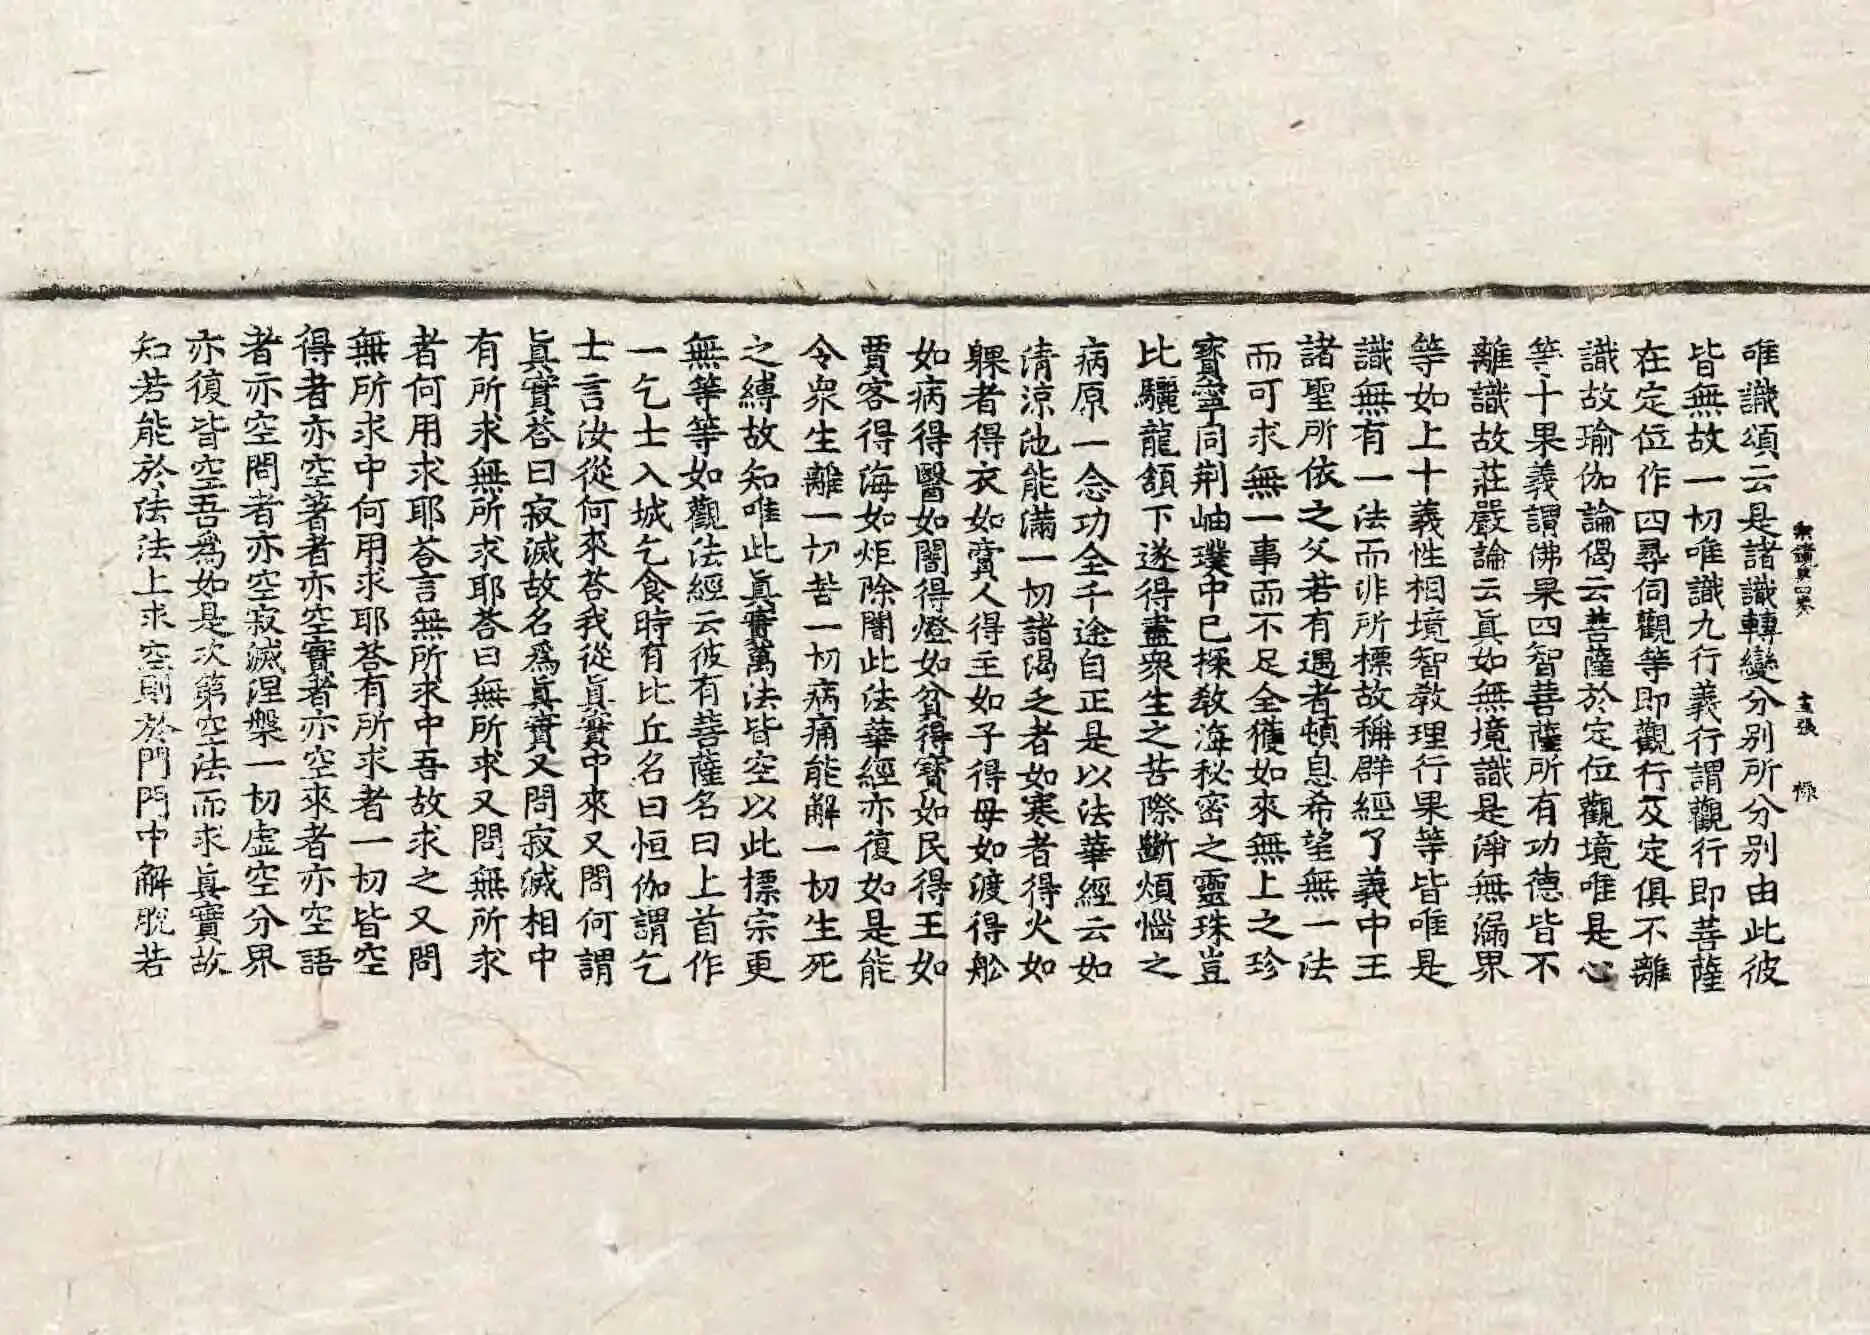 宗鏡第四卷　十五張　𣗳
唯識頌云是諸識轉變分別所分別由此彼
皆無故一切唯識九行義行謂觀行即菩薩
在定位作四尋伺觀等即觀行及定俱不離
識故瑜伽論偈云菩薩於定位觀境唯是心
等十果義謂佛果四智菩薩所有功德皆不
離識故莊嚴論云眞如無境識是淨無漏界
等如上十義性相境智教理行果等皆唯是
識無有一法而非所標故稱群經了義中王
諸聖所依之父若有遇者頓息希望無一法
而可求無一事而不足全獲如來無上之珍
寳寧同荆岫璞中已探敎海秘密之靈珠豈
比驪龍頷下遂得盡衆生之苦際斷煩惱之
病原一念功全千途自正是以法華經云如
清涼池能滿一切諸渴乏者如寒者得火如
躶者得衣如賣人得主如子得母如渡得舩
如病得醫如闇得燈如貧得寳如民得王如
賈客得海如炬除闇此法華經亦復如是能
令衆生離一切苦一切病痛能解一切生死
之縛故知唯此眞實萬法皆空以此標宗更
無等等如觀法經云彼有菩薩名曰上首作
一乞士入城乞食時有比丘名曰恒伽謂乞
士言汝從何來荅我從眞實中來又問何謂
眞實荅曰寂滅故名爲眞實又問寂滅相中
有所求無所求耶荅曰無所求又問無所求
者何用求耶荅言無所求中吾故求之又問
無所求中何用求耶荅有所求者一切皆空
得者亦空著者亦空實者亦空來者亦空語
者亦空問者亦空寂滅涅槃一切虛空分界
亦復皆空吾爲如是次第空法而求眞實故
知若能於法法上求空則於門門中解脫若